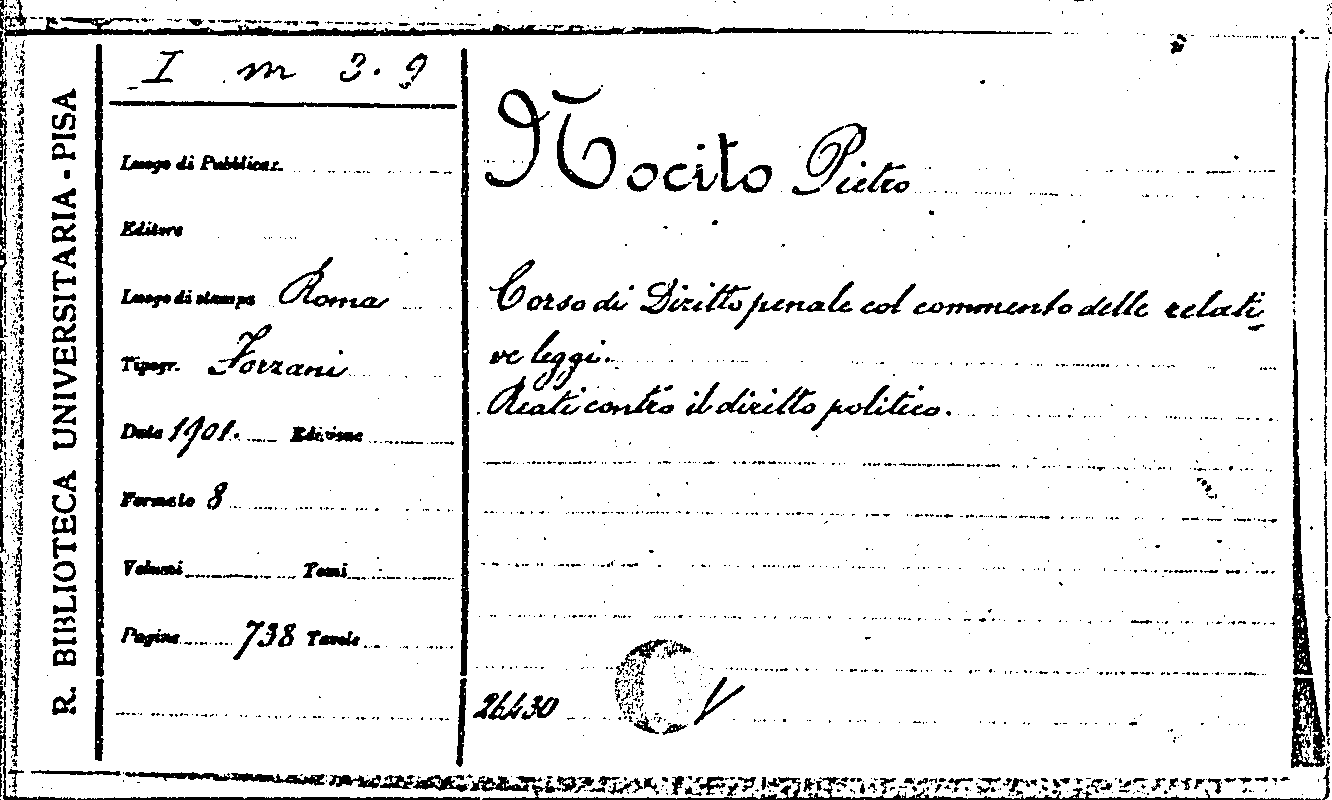 R. BIBLIOTECA UNIVERSITARIA - PISA
I m 3. 9
Luogo di Pubblicaz.
Editore
Luogo di stampa Roma
Tipogr. Forzani
Data 1901. Edizione
Formato 8
Volumi Tomi
Pagine 738 Tavole
Nocito Pietro
Corso di Diritto penale col commento delle relati-
ve leggi.
Reati contro il diritto politico.
26430
V